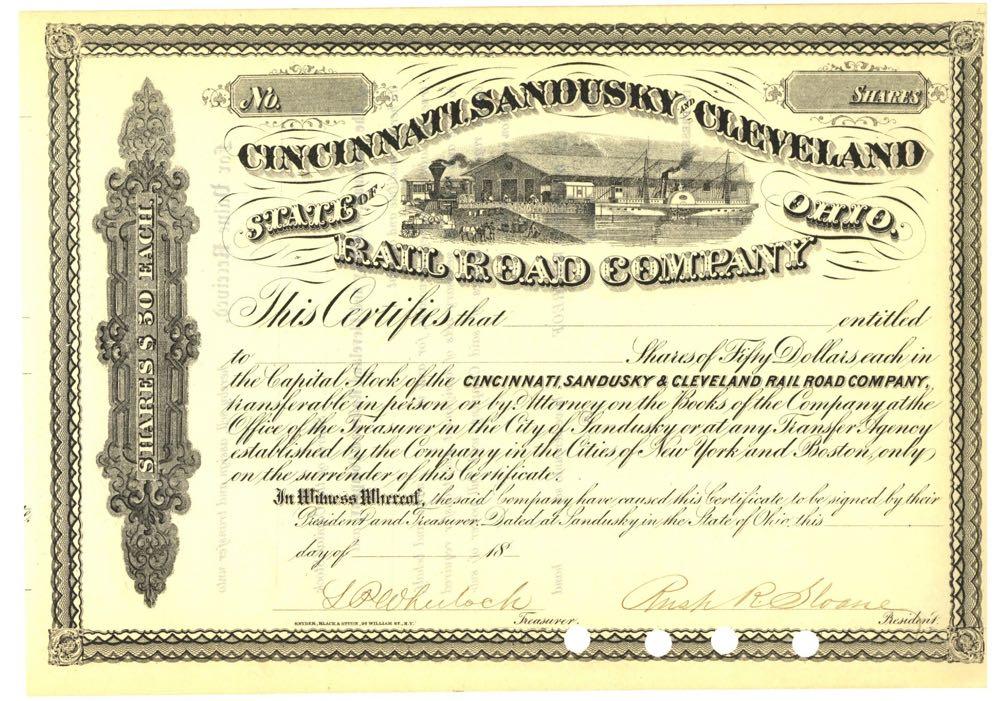 No.
SHARES
CINCINNATI, SANDUSKY AND CLEVELAND
STATE OF OHIO.
RAIL ROAD COMPANY
SHARES $50 EACH
This Certifies that entitled
to Shares of Fifty Dollars each in
the Capital Stock of the CINCINNATI, SANDUSKY & CLEVELAND RAIL ROAD COMPANY,
transferable in person or by Attorney on the Books of the Company at the
Office of the Treasurer in the City of Sandusky or at any Transfer Agency
established by the Company in the Cities of New York and Boston, only
on the surrender of this Certificate.
In Witness Whereof, the said Company have caused this Certificate to be signed by their
President and Treasurer. Dated at Sandusky in the State of Ohio, this
day of 18
Wheelock
Rush R. Sloane
SNYDER, BLACK & STURN, 92 WILLIAM ST., N.Y.
Treasurer.
President.